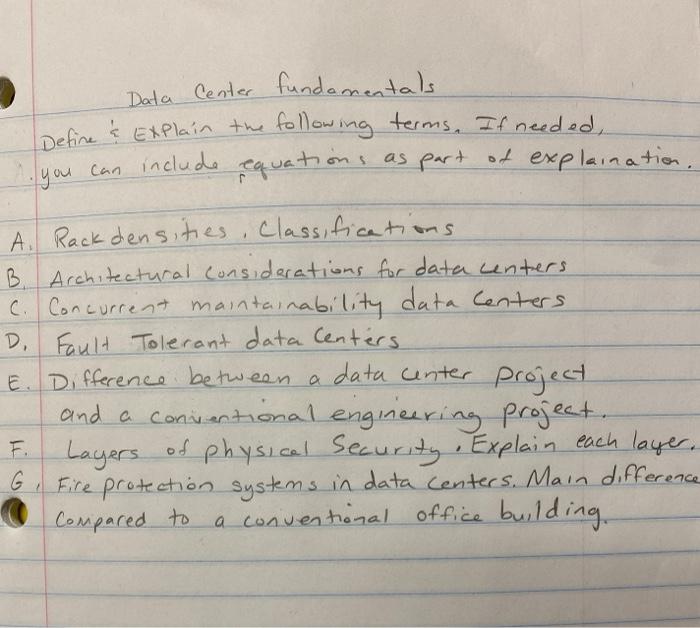 Data Center fundamentals
Define & Explain the following terms. If needed,
you can include equations as part of explaination.
A. Rack densities, Classifications
B. Architectural Considerations for data centers
C. Concurrent maintainability data Centers
D. Fault Tolerant data Centers
E. Difference between a data center project
and a conventional engineering project.
F. Layers of physical Security. Explain each layer.
G. Fire protection systems in data centers. Main difference
Compared to a conventional office building.